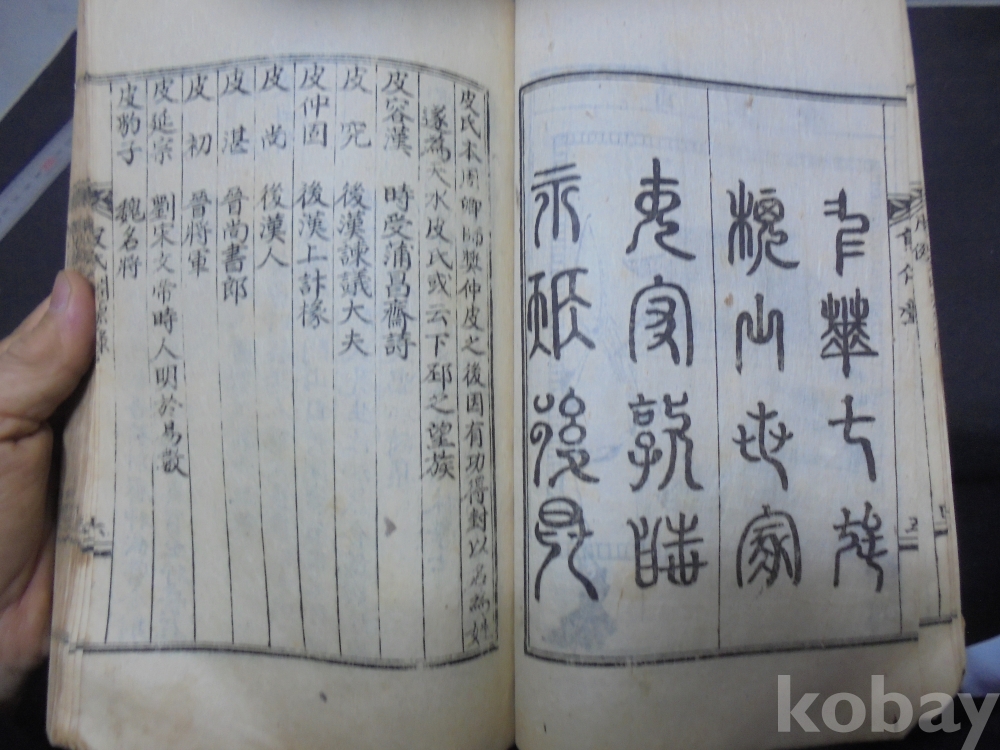 華士族
槐山世家
守敦睦
永 後昆
五
皮氏本周卿師樊仲皮之後因有功得封以名爲姓
遂爲天水皮氏或云下邳之望族
皮容漢 時受蒲昌齋詩
皮究 後漢諫議大夫
皮仲固 後漢上計掾
皮尚 後漢人
皮湛 晉尚書郎
皮初 晉將軍
皮延宗 劉宋文帝時人明於易數
皮豹子 魏名將
六
kobay